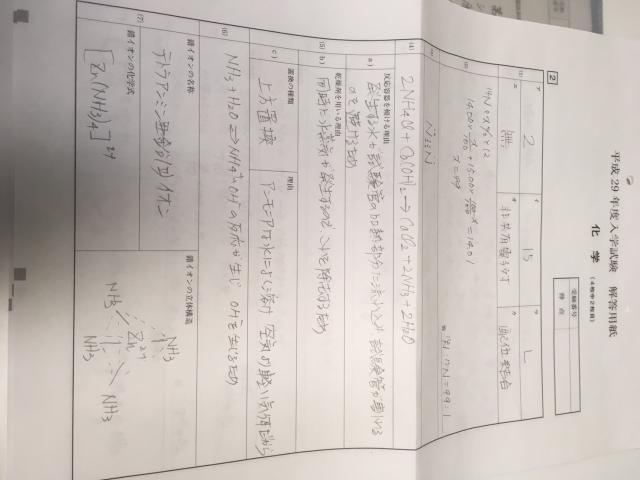 平成29年度入学試験 解答用紙
化学
(4枚中2枚目)
受験番号
得点
2
(1)
ア
2
イ
15
ウ
L
エ
無
オ
非共有電子対
カ
配位結合
(2)
14.00×x/100+15.00×(100-x)/100=14.01
x=99
14N:15N=99:1
(3)
N≡N
(4)
2NH4Cl+Ca(OH)2→CaCl2+2NH3+2H2O
(5)
a)
反応容器を傾ける理由
発生した水が試験管の加熱部分に流れ込み 試験管が割れる
のを避けるため
b)
乾燥剤を用いる理由
同時に水蒸気が発生するので、これを除去するため
c)
置換の種類
上方置換
理由
アンモニアは水によく溶け 空気より軽い気体だから
(6)
NH3+H2O⇄NH4++OH-の反応が生じ OH-を生じるため
(7)
錯イオンの名称
テトラアンミン亜鉛(Ⅱ)イオン
錯イオンの化学式
[Zn(NH3)4]2+
錯イオンの立体構造
NH3
Zn2+
NH3
NH3
NH3